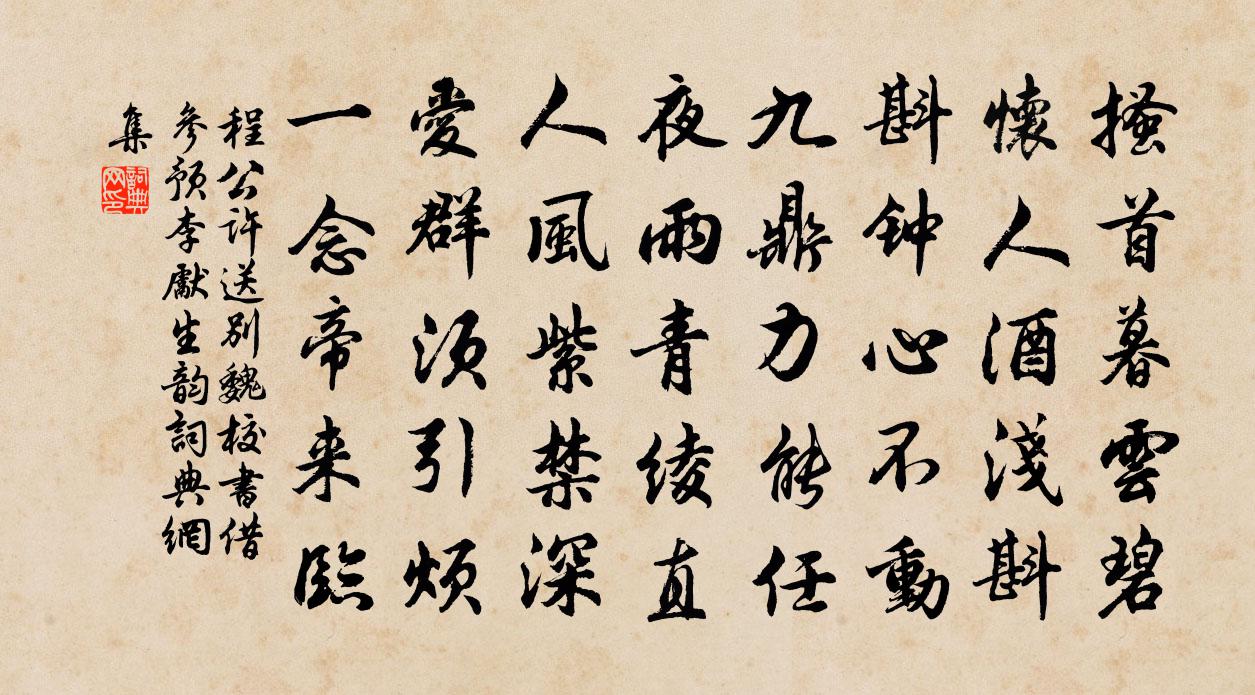 搔首暮雲碧
懷人酒淺斟
斟钟心不動
九鼎力能任
夜雨青绫直
人風紫禁深
愛群須引烦
一念帝来臨
程公许送别魏校書借
參预李獻生韵詞典網
集
詞典
网印